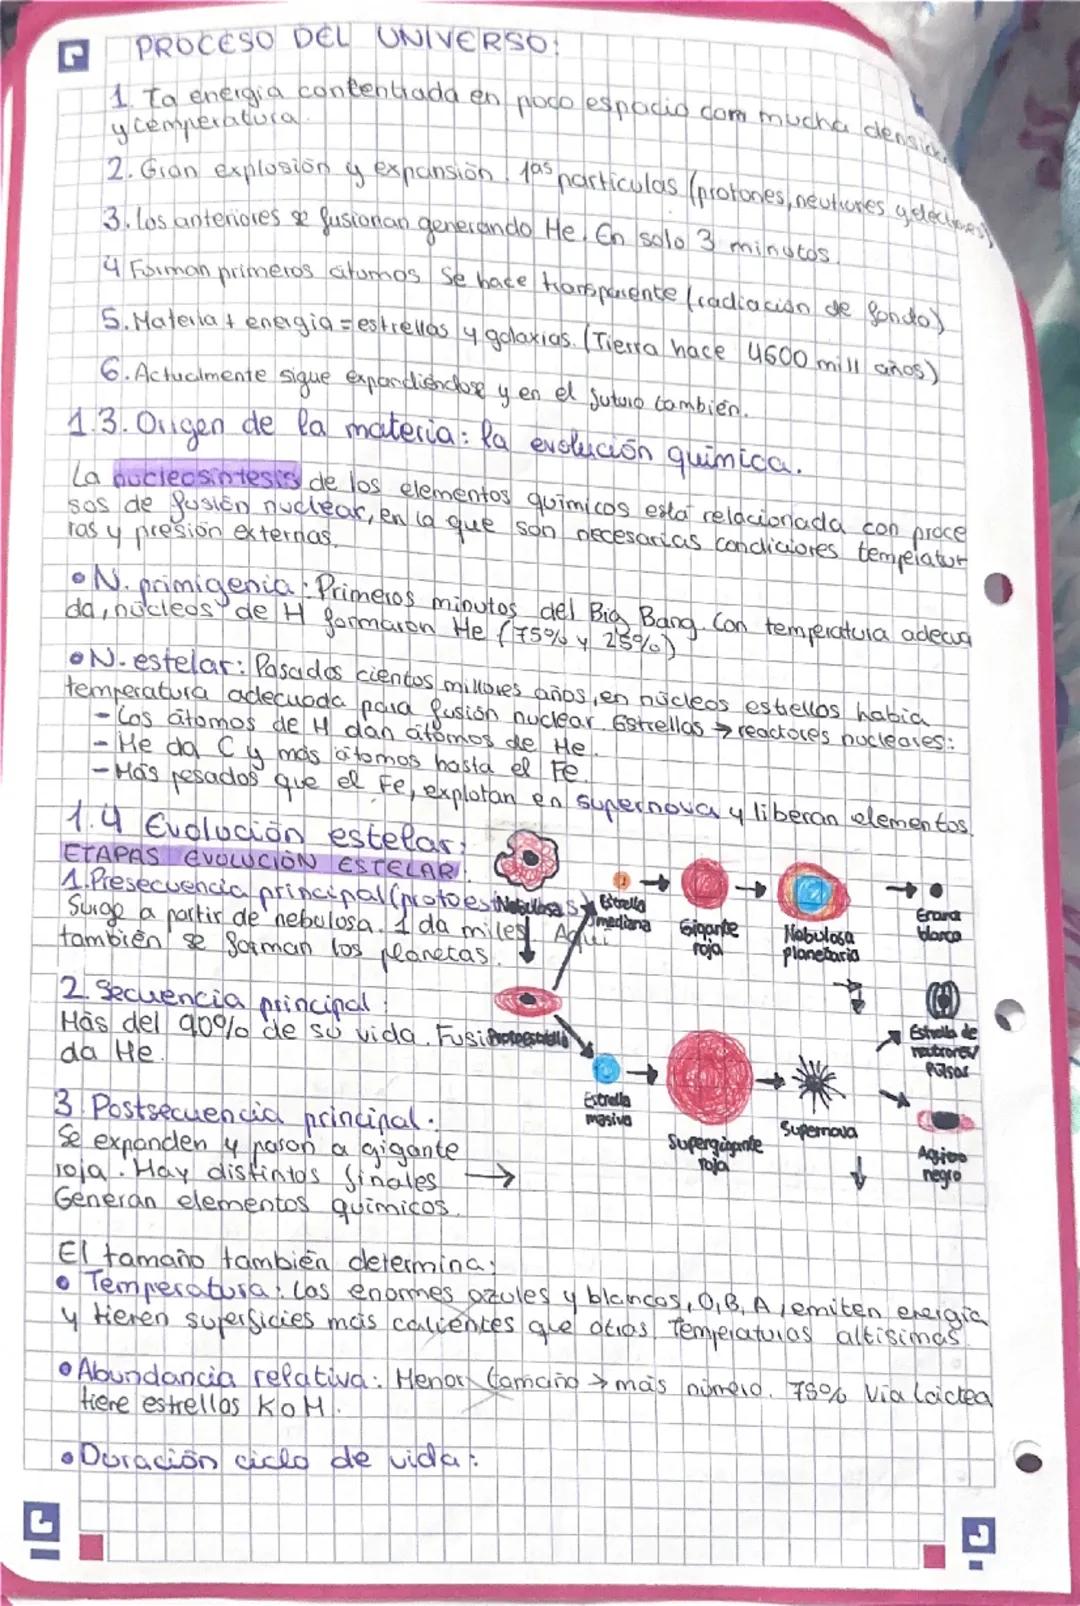 PROCESO DEL UNIVERSO:
1. Ta energia contentrada en poco espacio com mucha densidad
y temperatura.
2. Gran explosión y expansión. las particulas (protones, neutrones y electrones)
3. Los anteriores se fusionan generando He. En solo 3 minutos.
4 Forman primeros átomos. Se hace transparente (radiación de fondo)
5. Materia + energia = estrellas y galaxias. (Tierra hace 4600 mill años)
6. Actualmente sigue expandiéndose y en el futuro también.
1.3. Origen de la materia: la evolución química.
La nucleosíntesis de los elementos químicos está relacionada con proce
sos de fusión nuclear, en la que son necesarias condiciones temperatur
ras y presión externas.
• N. primigenia: Primeros minutos del Big Bang. Con temperatura adecua
da, núcleos de H formaron He (75% y 25%)
• N. estelar: Pasados cientos millones años, en núcleos estrellos habia
temperatura adecuada para fusión nuclear. Estrellas → reactores nucleares:
- Los átomos de H dan átomos de He.
- He da C y más átomos hasta el Fe.
- Más pesados que el Fe, explotan en supernova y liberan elementos.
1.4 Evolución estelar:
ETAPAS EVOLUCIÓN ESTELAR:
1. Presecuencia principal (protoes
Surge a partir de nebulosa. 1 da miles. Aqui
también se forman los planetas.
2. Secuencia principal:
Más del 90% de su vida. Fusi
da He.
3 Postsecuencia principal:
Se expanden y pasan a gigante
roja. Hay distintos finales →
Generan elementos químicos.
Nebulosa
Estrella
mediana
Gigante
roja
Nebulosa
planetaria
Enana
blanca
Protoestrella
Estrella
masiva
Supergigante
roja
Supernova
Estrella de
neutrones/
Púlsar
Agujero
negro
El tamaño también determina:
• Temperatura: Las enormes azules y blancas, O, B, A, emiten energia
y tienen superficies más calientes que otras. Temperaturas altísimas.
• Abundancia relativa: Menor tamaño → más número. 78% Via Láctea
tiene estrellas K o M.
• Duración ciclo de vida: